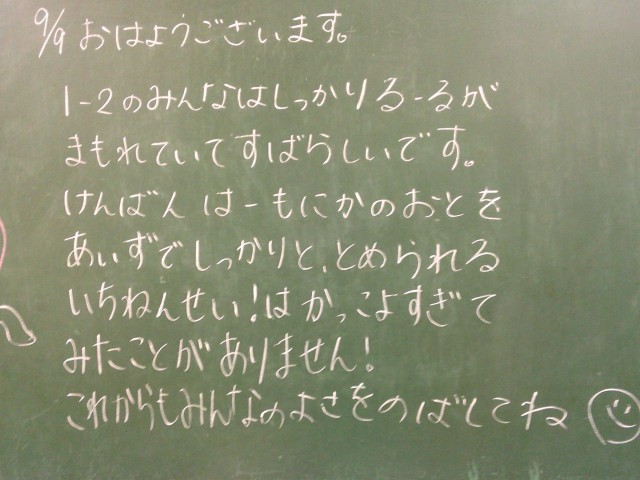 9/9 おはようございます。
1-2のみんなはしっかりるーるが
まもれていてすばらしいです。
けんばん はーもにかのおとを
あいずでしっかりと、とめられる
いちねんせい!はかっこよすぎて
みたことがありません!
これからもみんなのよさをのばしてね